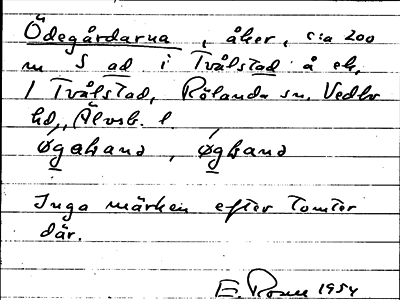 Ödegårdarna, åker, c:a 200
m S ad i Tvålstad å ek.
1 Tvålstad, Rölanda sn, Vedbo
hd, Älvsb. l.
øgaband, øgband
Inga märken efter tomter
där.
E 1954